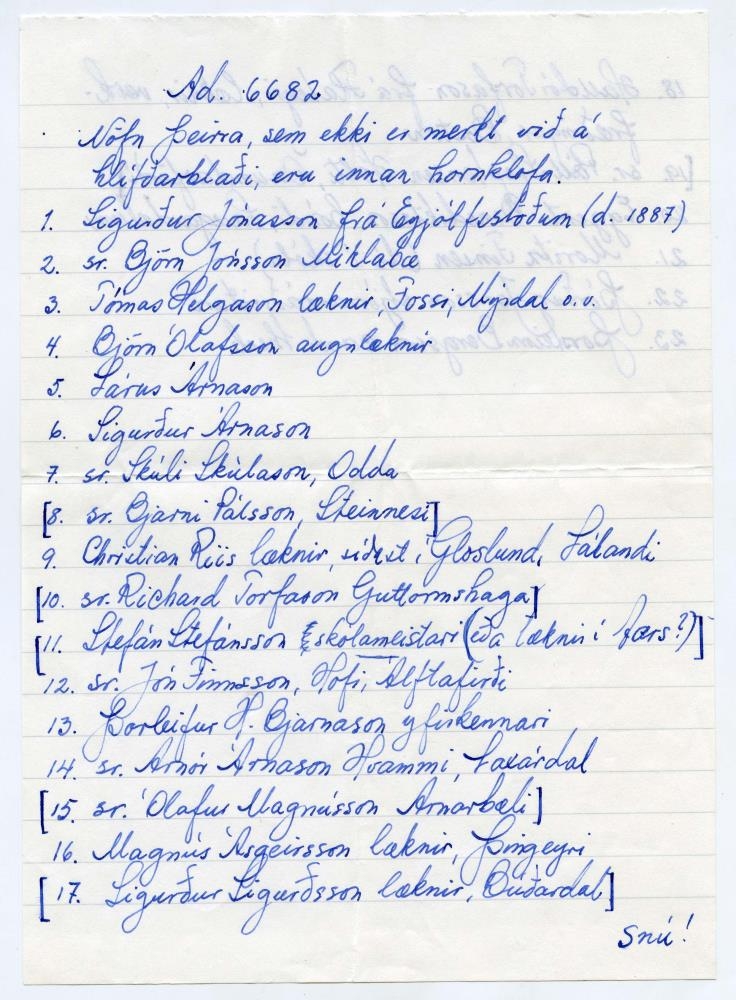 Ad. 6682
Nöfn þeirra, sem ekki er merkt við á
hlífðarblaði, eru innan hornklofa.
1. Sigurður Jónasson frá Eyjólfsstöðum (d. 1887)
2. sr. Björn Jónsson Miklabæ
3. Tómas Helgason læknir, Fossi, Mýrdal o.v.
4. Björn Ólafsson augnlæknir
5. Lárus Árnason
6. Sigurður Árnason
7. sr. Skúli Skúlason, Odda
[8. sr. Bjarni Pálsson, Steinnesi]
9. Christian Riis læknir, síðast í Gloslund, Lálandi
[10. sr. Richard Torfason Guttormshaga]
[11. Stefán Stefánsson skólameistari (eða læknir í Aars?)]
12. sr. Jón Finnsson, Hofi, Álftafirði
13. Þorleifur H. Bjarnason yfirkennari
14. sr. Arnór Árnason Hvammi, Laxárdal
[15. sr. Ólafur Magnússon Arnarbæli]
16. Magnús Ásgeirsson læknir, Þingeyri
[17. Sigurður Sigurðsson læknir, Búðardal]
Snú!